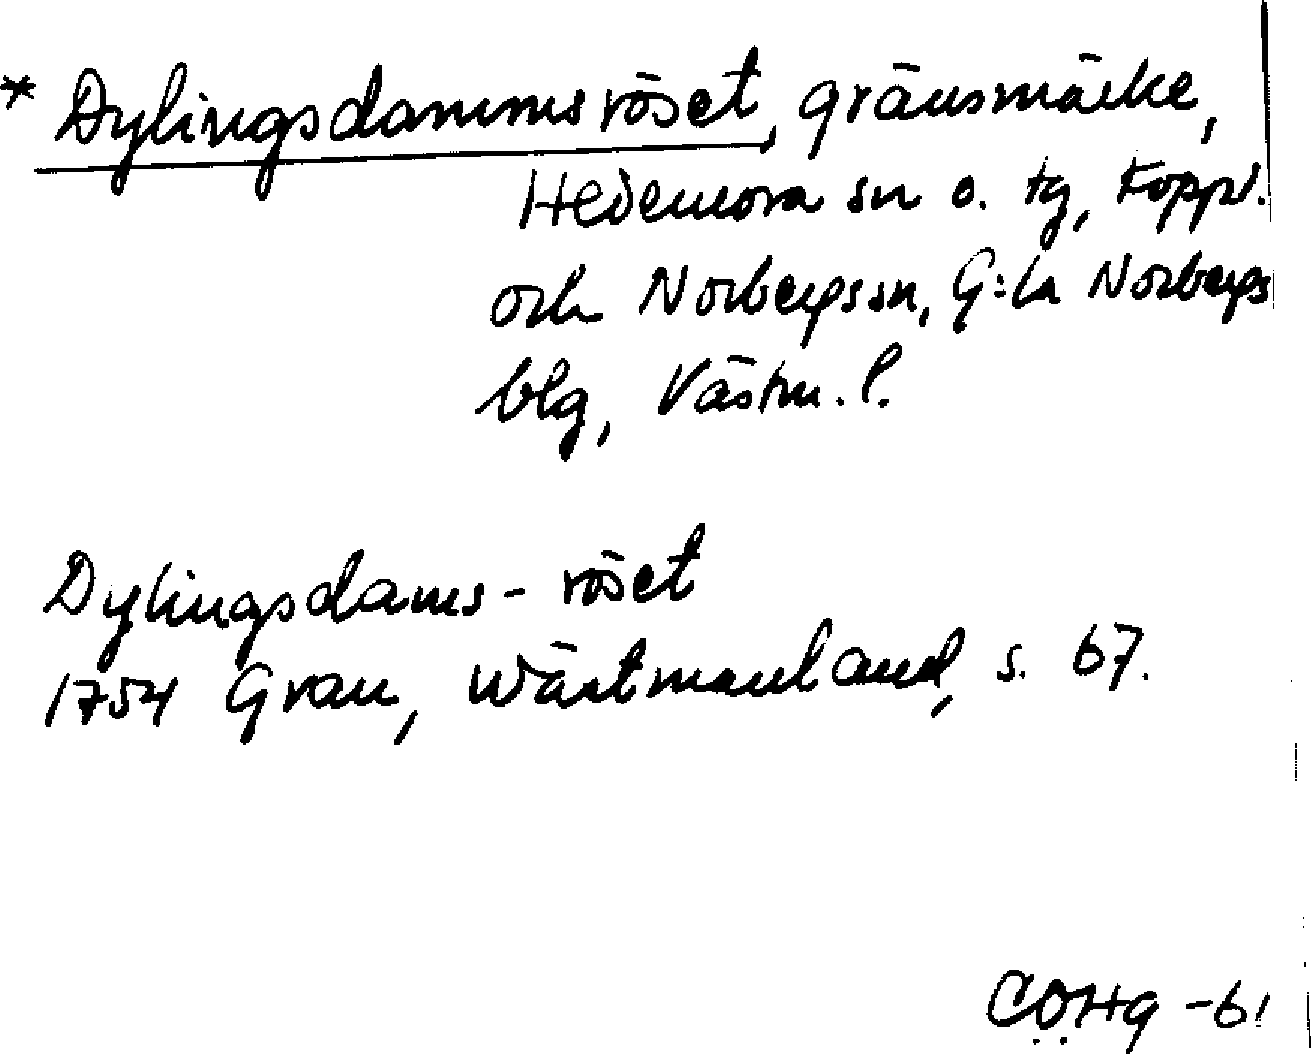 * Dylingsdammsröset, gränsmärke,
Hedemora sn o. tg, Koppl.
och Norbergs sn, G:la Norbergs
blg, Västm. l.
Dylingsdams-röset
1754 Grau, Wästmanland, s. 67.
CÖHg -61